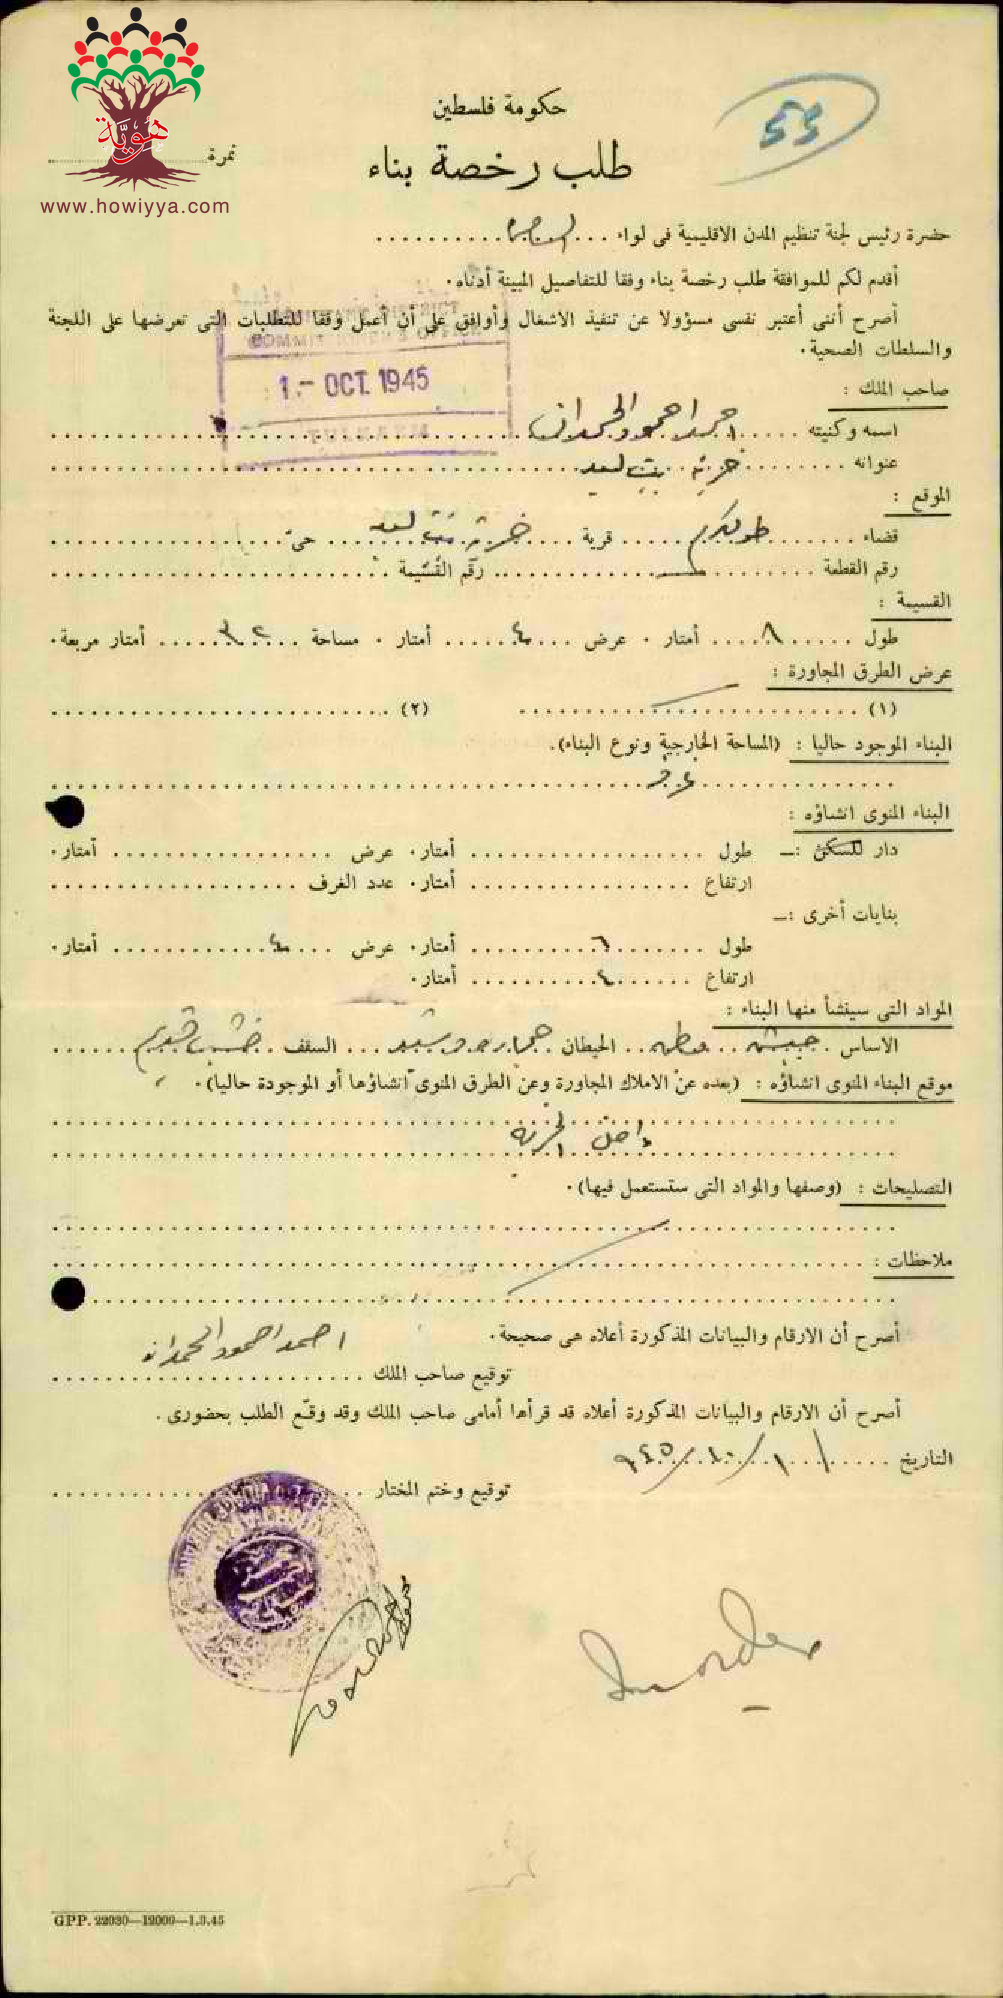 هويّة
www.howiyya.com
55
حكومة فلسطين
طلب رخصة بناء
نمرة
حضرة رئيس لجنة تنظيم المدن الاقليمية فى لواء
أقدم لكم للموافقة طلب رخصة بناء وفقا للتفاصيل المبينة أدناه.
أصرح أننى أعتبر نفسى مسؤولا عن تنفيذ الاشغال وأوافق على أن أعمل وفقا للمتطلبات التى تعرضها على اللجنة
والسلطات الصحية.
COMMISSIONER'S OFFICE
1 - OCT. 1945
TULKARM
صاحب الملك :
اسمه وكنيته احمد احمود الحمدان
عنوانه خربة بيت ليد
الموقع :
قضاء طولكرم قرية خربة بيت ليد حى
رقم القطعة رقم القسيمة
القسيمة :
طول ٨ أمتار . عرض ٤ أمتار . مساحة ٣٢ أمتار مربعة.
عرض الطرق المجاورة :
(١) (٢)
البناء الموجود حاليا : (المساحة الخارجية ونوع البناء).
البناء المنوى انشاؤه :
دار للسكن :— طول أمتار. عرض أمتار.
ارتفاع أمتار. عدد الغرف
بنايات أخرى :—
طول ٦ أمتار. عرض ٤ أمتار.
ارتفاع ٤ أمتار.
المواد التى سينشأ منها البناء :
الاساس الحيطان حجاره السقف خشب
موقع البناء المنوى انشاؤه : (بعده عن الاملاك المجاورة وعن الطرق المنوى انشاؤها أو الموجودة حاليا).
داخل الخربة
التصليحات : (وصفها والمواد التى ستستعمل فيها).
ملاحظات :
أصرح أن الارقام والبيانات المذكورة أعلاه هى صحيحة.
احمد احمود الحمدان
توقيع صاحب الملك
أصرح أن الارقام والبيانات المذكورة أعلاه قد قرأها أمامى صاحب الملك وقد وقّع الطلب بحضورى .
التاريخ ١/١٠/٩٤٥
توقيع وختم المختار
GPP. 22030—12000—1.3.45